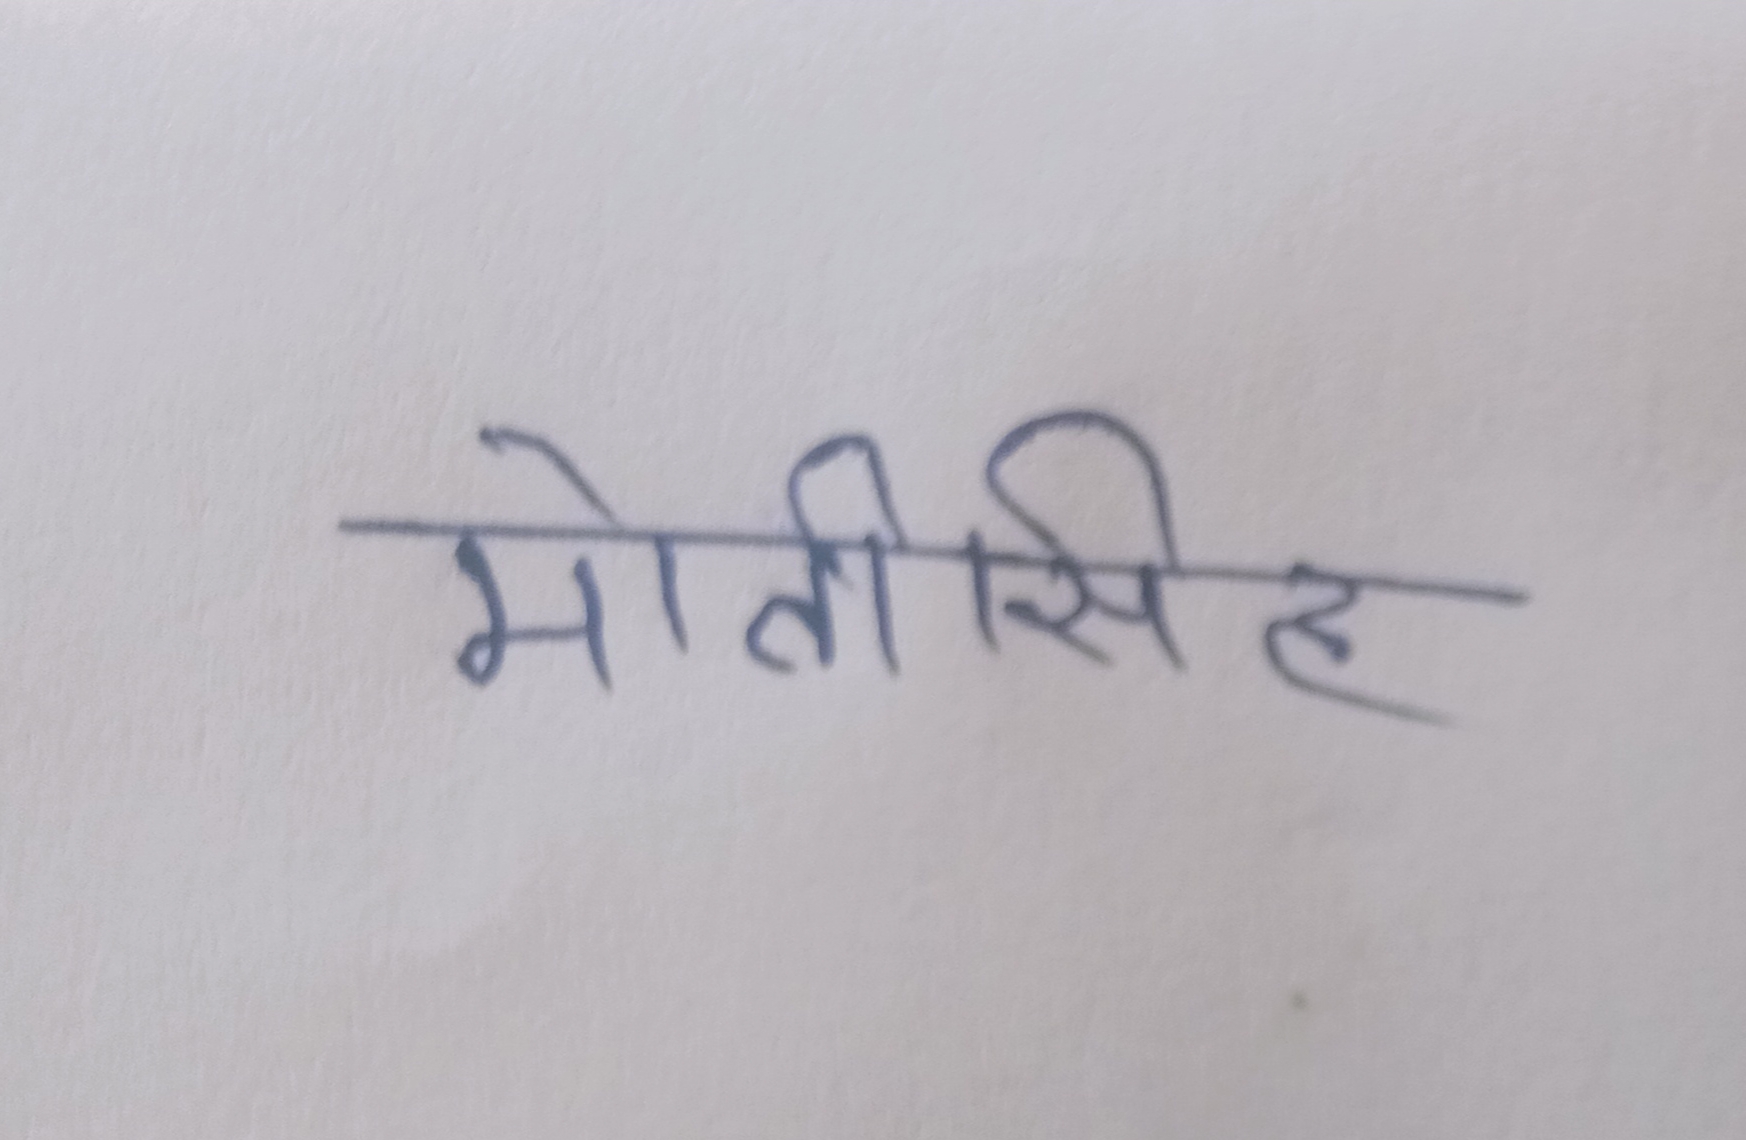 मोतीसिह